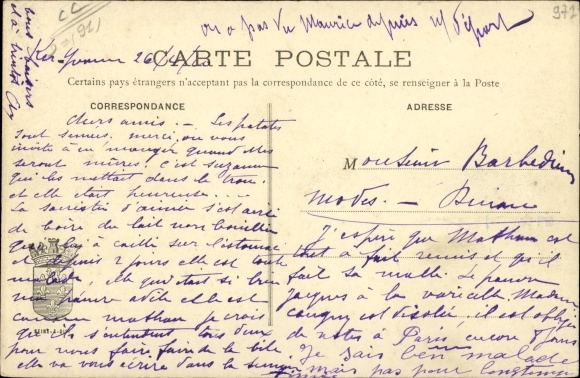 on a pas vu Maurice depuis n/ départ
bons baisers
et à bientôt
Ker-Yvonne 26/4/
CARTE POSTALE
Certains pays étrangers n'acceptant pas la correspondance de ce côté, se renseigner à la Poste
CORRESPONDANCE
ADRESSE
Chers amis. — Les patates
sont semées. merci, on vous
invite à en manger quand elles
seront mûres. C'est Suzanne
qui les mettait dans le trou.
et elle était heureuse....
La
de boire du lait non bouilli
qui lui a caillé sur l'estomac
et depuis 2 jours elle est toute
malade, elle qui était si bien
ma pauvre elle est
comme Mathan je crois
qu'ils s'entendent tous deux
pour nous faire faire de la bile
elle va vous écrire dans la semaine
Monsieur Barbedienne
Modes. — Dinan
J'espère que Mathan est
tout à fait remis et qu'il
fait sa malle. Le pauvre
Jacques a la varicelle, Madame
est désolée, il est obligé
de rester à Paris encore 8 jours
Je suis bien malade
mais pas pour longtemps